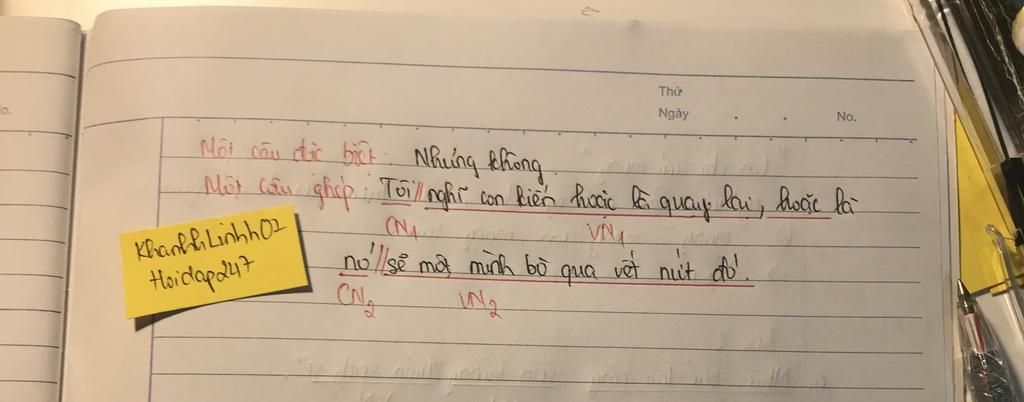 Thứ
Ngày . . No.
Một câu đặc biệt: Nhưng không.
Một câu ghép: Tôi//nghĩ con kiến hoặc là quay lại, hoặc là
CN1 VN1
nó//sẽ một mình bò qua vết nứt đó.
CN2 VN2
KhanhhLinhh02
Hoidap247